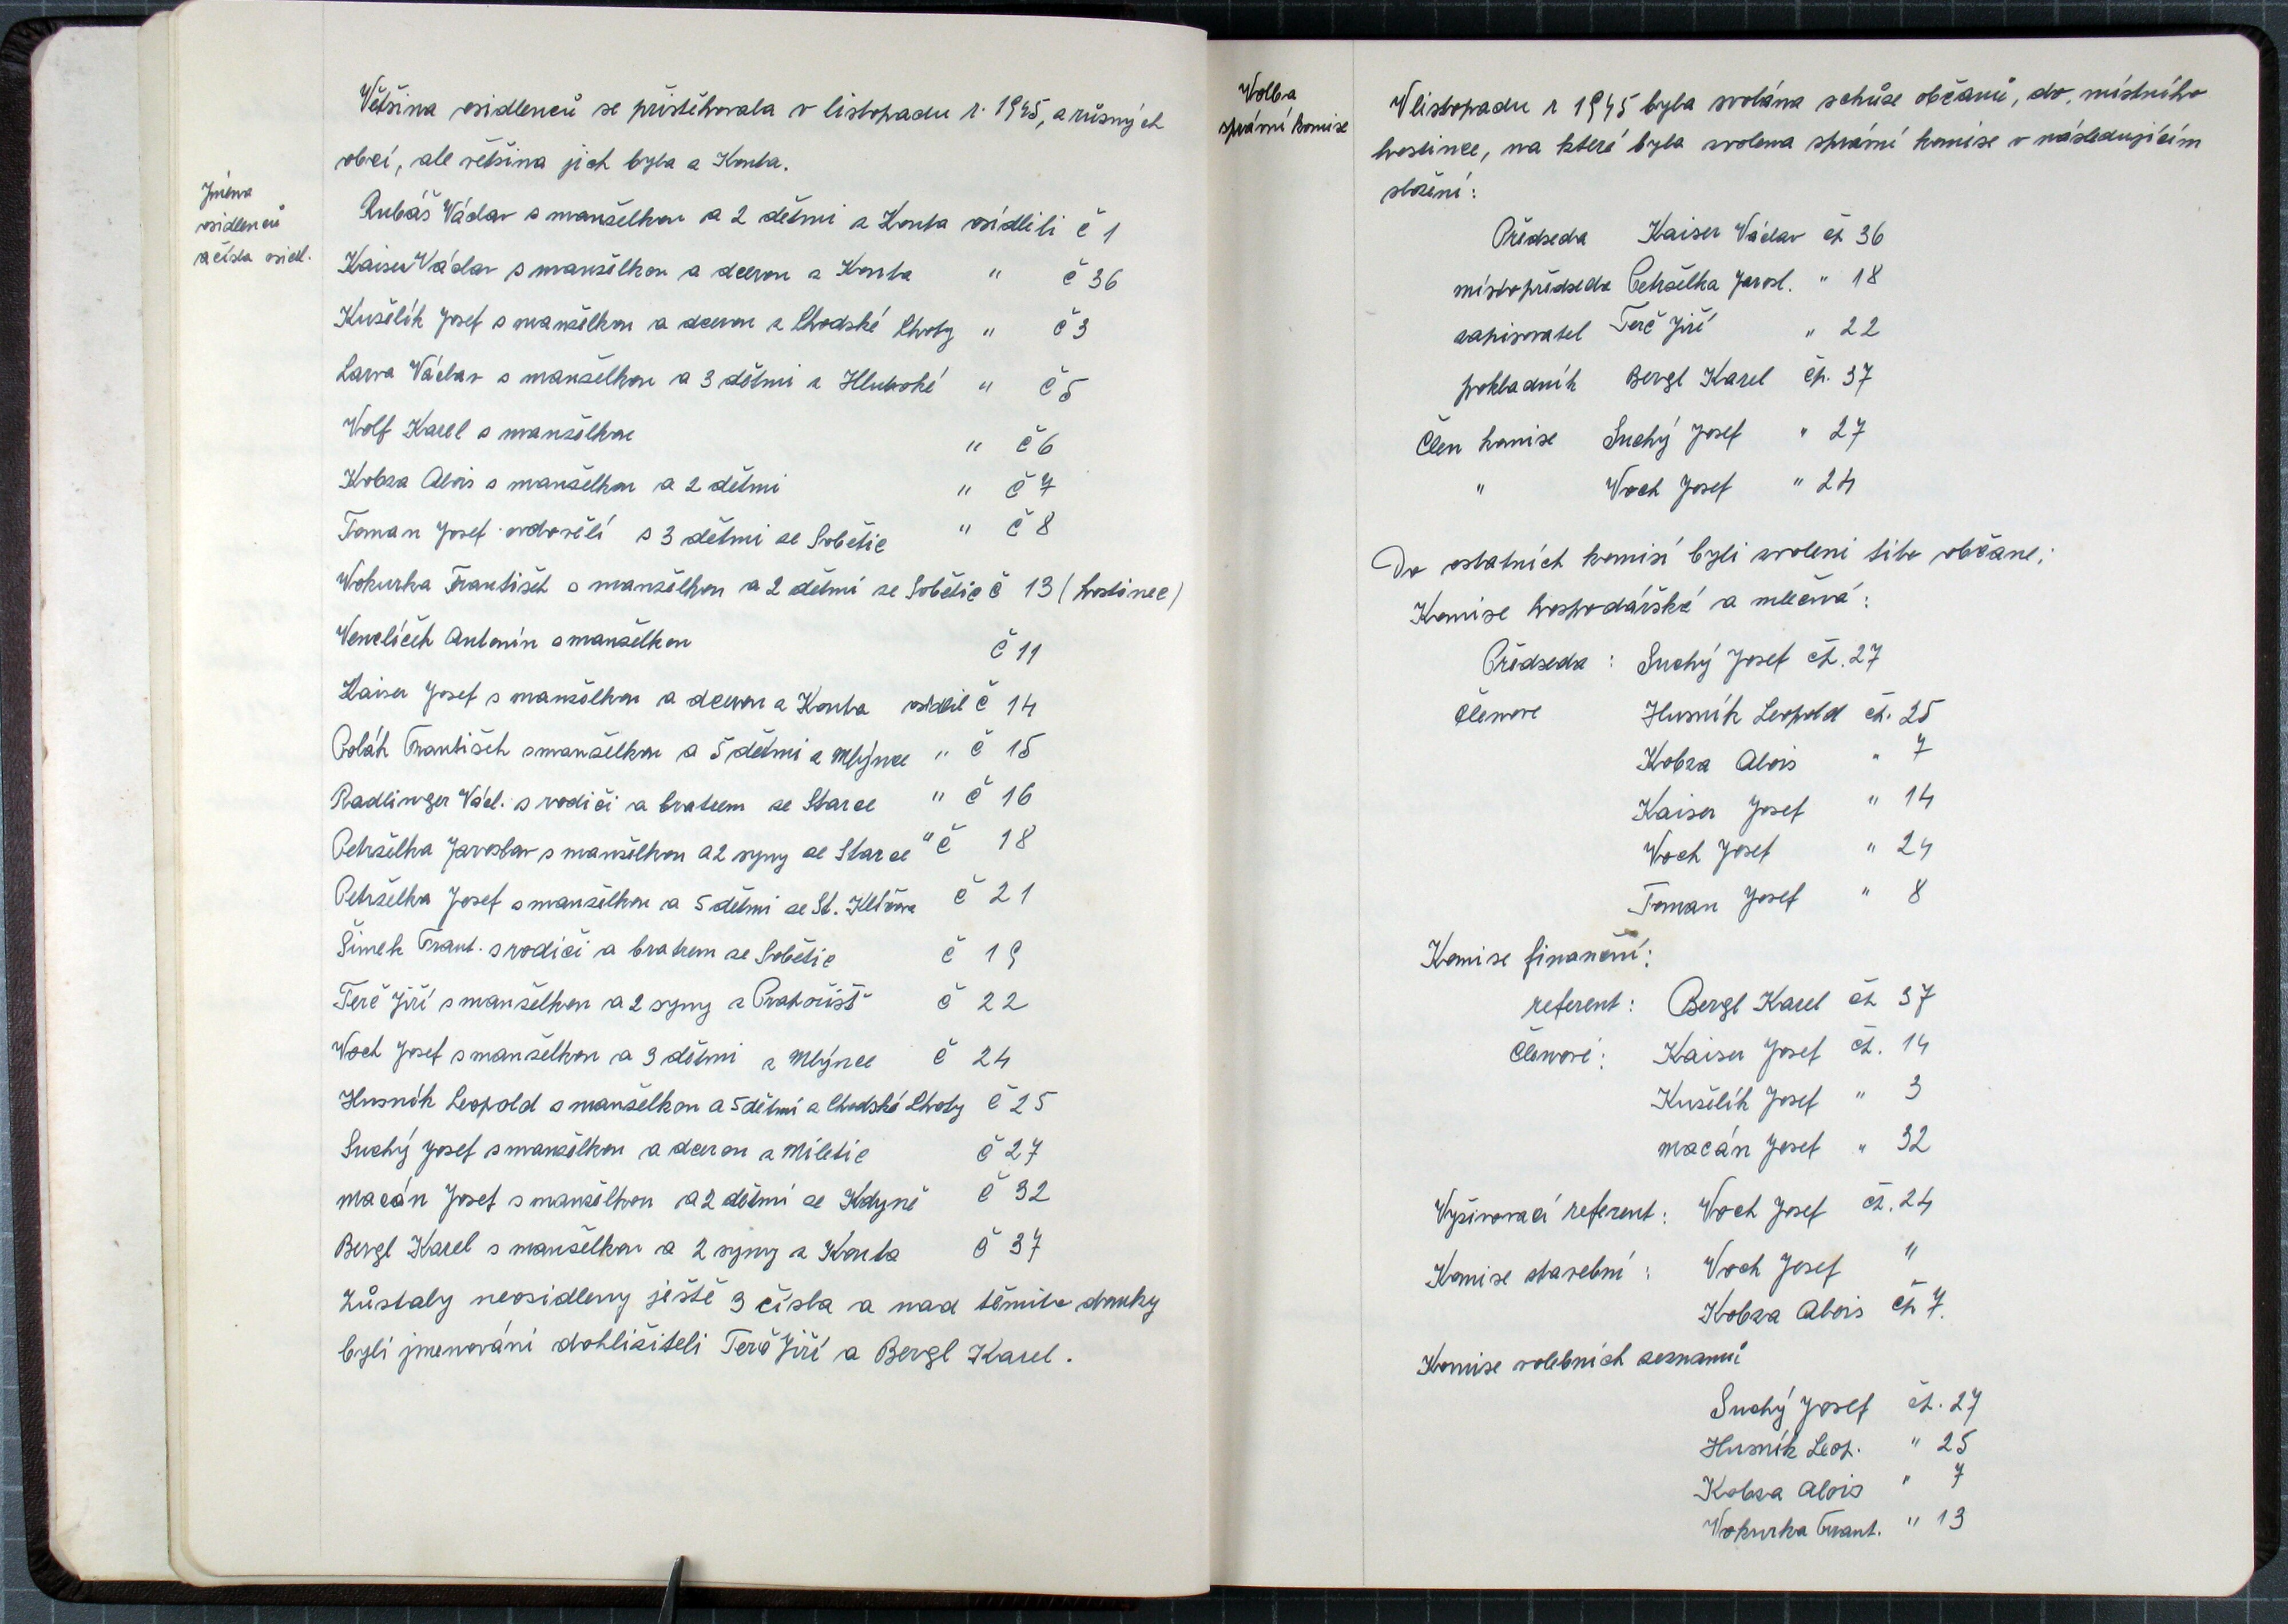 Většina osidlenců se přistěhovala v listopadu r. 1945, z různých
obcí, ale většina jich byla z Kouta.
Jména
osidlenců
a čísla osidl.
Rubáš Václav s manželkou a 2 dětmi z Kouta osídlili č 1
Kaiser Václav s manželkou a dcerou z Kouta " č 36
Kuželík Josef s manželkou a dcerou z Chodské Lhoty " č 3
Larva Václav s manželkou a 3 dětmi z Hluboké " č 5
Wolf Karel s manželkou " č 6
Kobza Alois s manželkou a 2 dětmi " č 7
Toman Josef ovdovělí s 3 dětmi ze Sobětic " č 8
Wokurka František s manželkou a 2 dětmi ze Sobětic č 13 (hostinec)
Venclíček Antonín s manželkou č 11
Kaiser Josef s manželkou a dcerou z Kouta osidlil č 14
Polák František s manželkou a 5 dětmi z Mlýnce " č 15
Radlinger Václ. s rodiči a bratrem ze Starce " č 16
Petrželka Jaroslav s manželkou a 2 syny ze Starce " č 18
Petrželka Josef s manželkou a 5 dětmi ze St. Klíčova č 21
Šimek Frant. s rodiči a bratrem ze Sobětic č 19
Terč Jiří s manželkou a 2 syny z Prapořišť č 22
Woch Josef s manželkou a 3 dětmi z Mlýnce č 24
Husník Leopold s manželkou a 5 dětmi z Chodské Lhoty č 25
Suchý Josef s manželkou a dcerou z Miletic č 27
Macán Josef s manželkou a 2 dětmi ze Kdyně č 32
Bergl Karel s manželkou a 2 syny z Kouta č 37
Zůstaly neosidleny ještě 3 čísla a nad těmito domky
byli jmenováni dohližiteli Terč Jiří a Bergl Karel.
Wolba
správní komise
V listopadu r 1945 byla svolána schůze občanů, do místního
hostince, na které byla zvolena správní komise v následujícím
složení:
Předseda Kaiser Václav čp 36
místopředseda Petrželka Jarosl. " 18
zapisovatel Terč Jiří " 22
pokladník Bergl Karel čp. 37
Člen komise Suchý Josef " 27
" Woch Josef " 24
Do ostatních komisí byli zvoleni tito občane:
Komise hospodářská a mléčná:
Předseda : Suchý Josef čp. 27
Členove Husník Leopold čp. 25
Kobza Alois " 7
Kaiser Josef " 14
Woch Josef " 24
Toman Josef " 8
Komise finanční:
referent: Bergl Karel čp 37
Členové: Kaiser Josef čp. 14
Kuželík Josef " 3
Macán Josef " 32
Vyživovací referent: Woch Josef čp. 24
Komise stavební: Woch Josef "
Kobza Alois čp 7.
Komise volebních seznamů
Suchý Josef čp. 27
Husník Leop. " 25
Kobza Alois " 7
Wokurka Frant. " 13